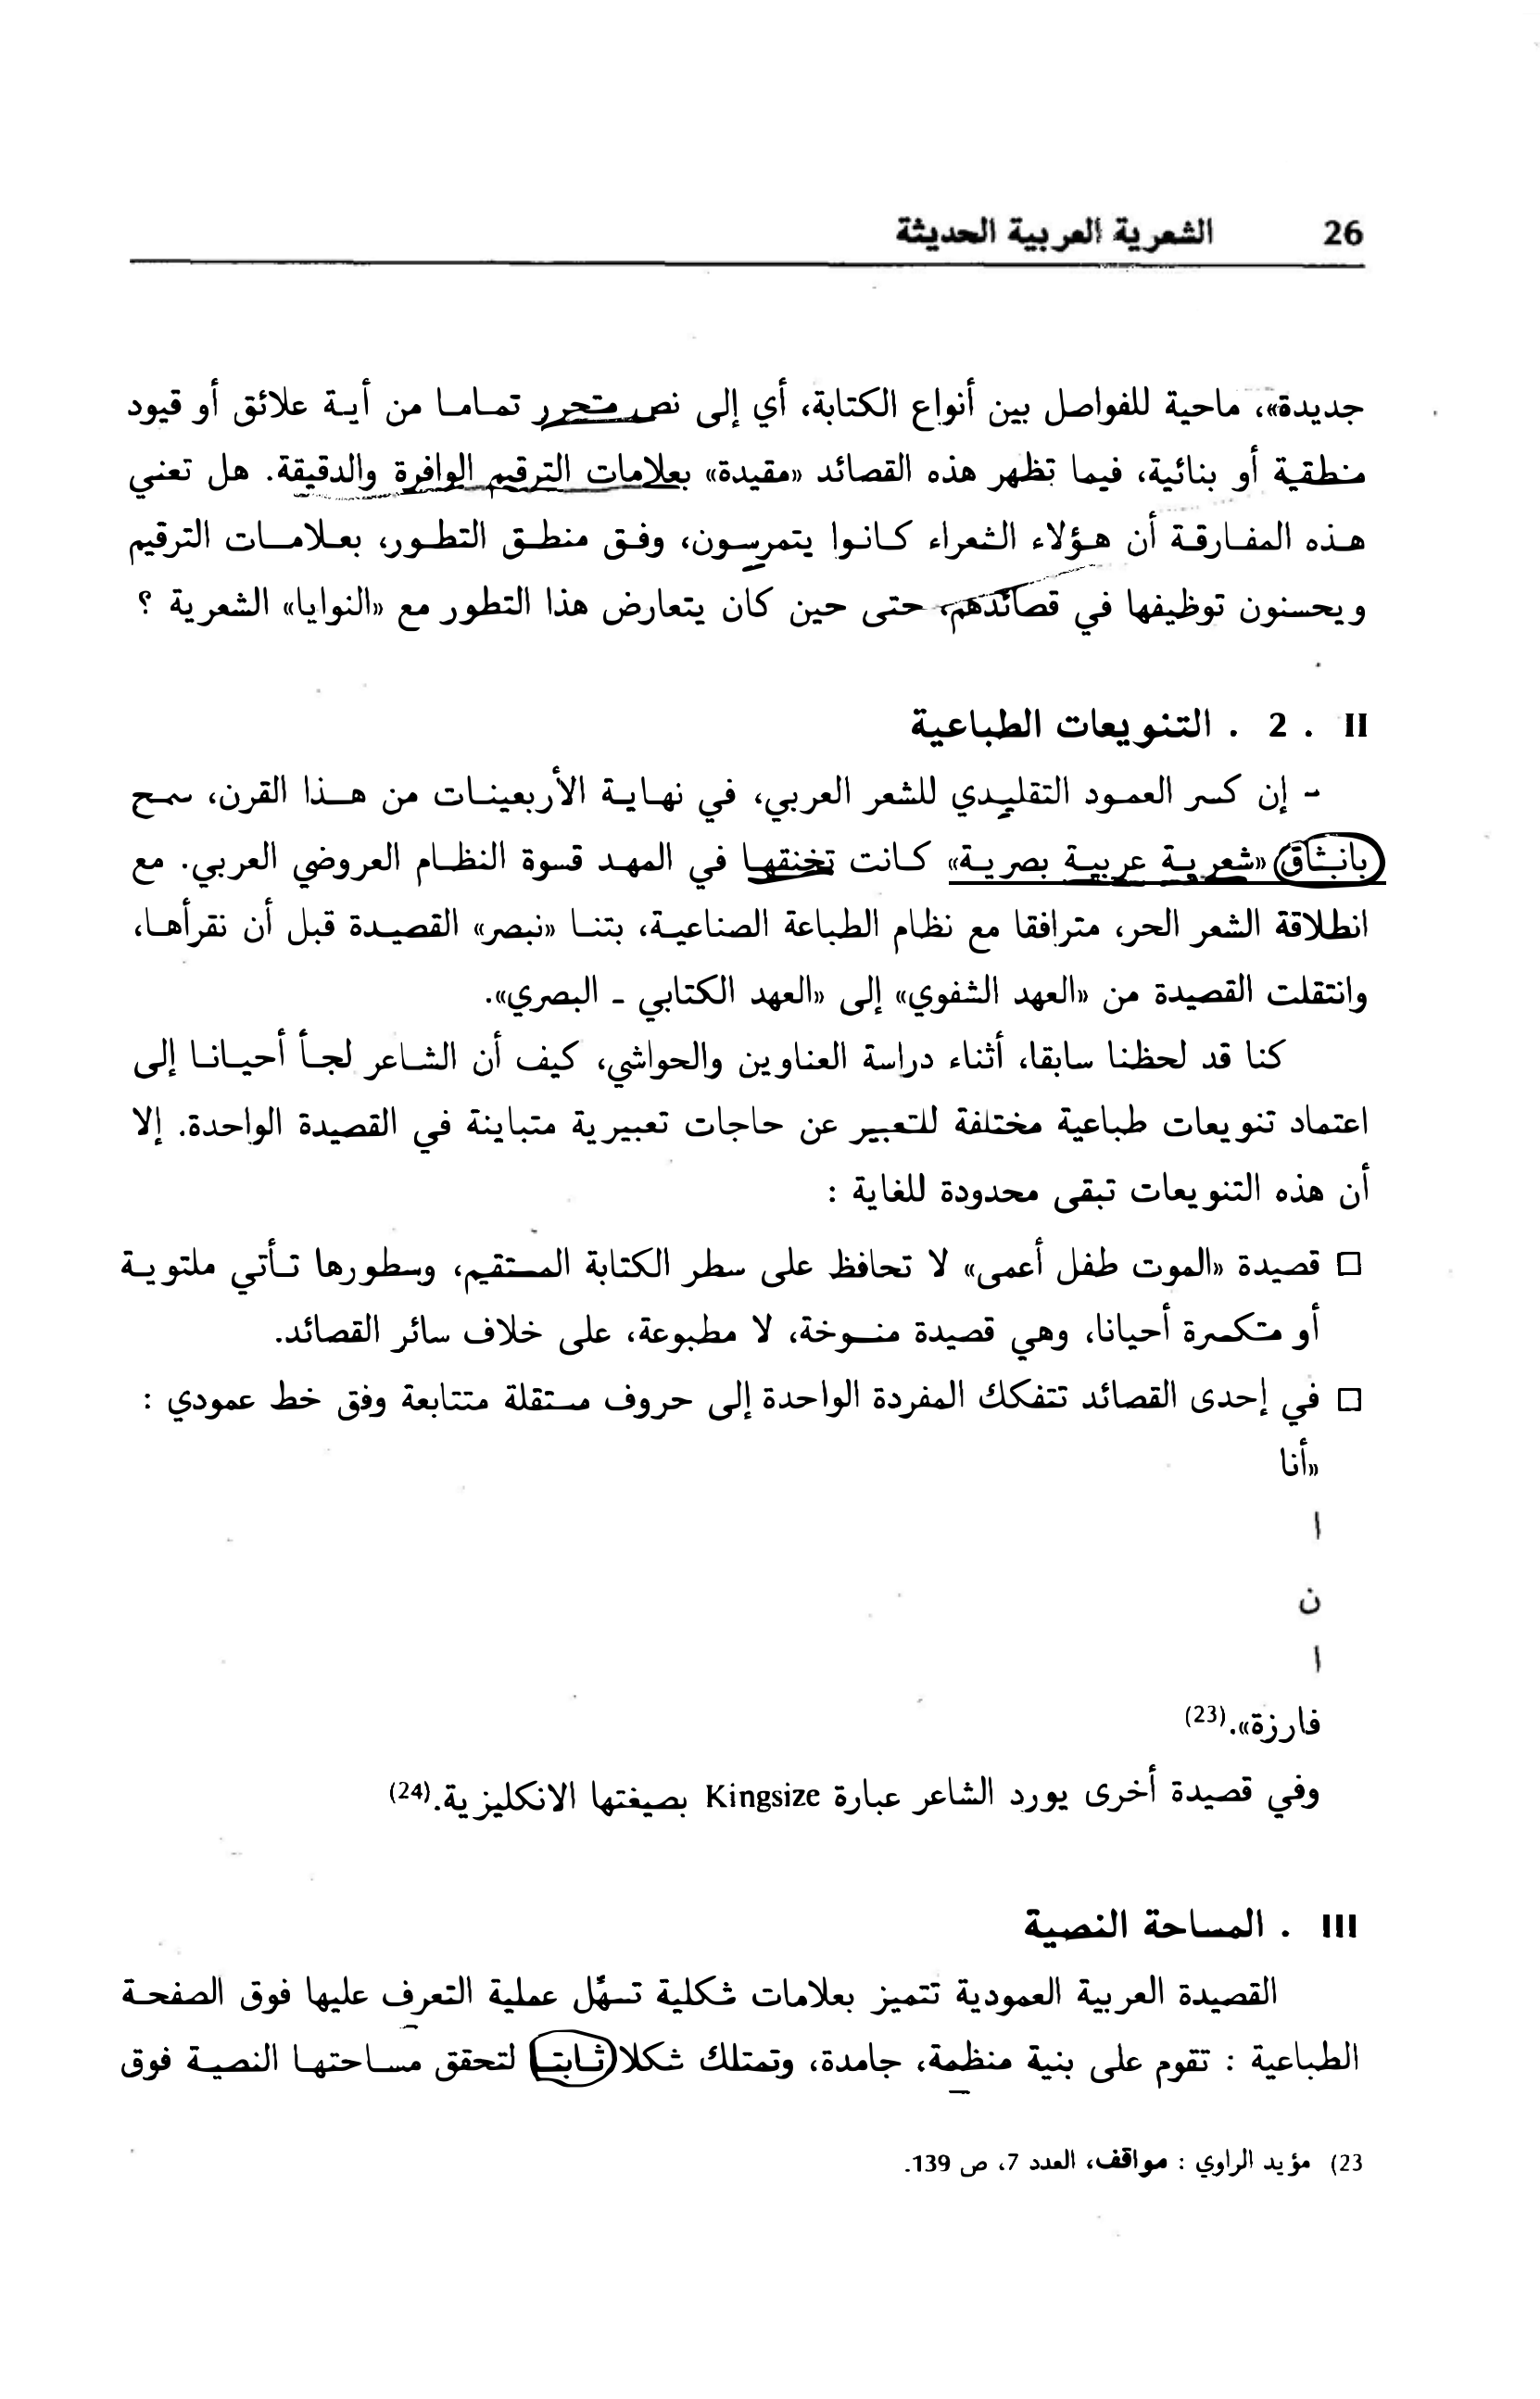 26 الشعرية العربية الحديثة
جديدة»، ماحية للفواصل بين أنواع الكتابة، أي إلى نص متحرر تماما من أية علائق أو قيود
منطقية أو بنائية، فيما تظهر هذه القصائد «مقيدة» بعلامات الترقيم الوافرة والدقيقة. هل تعني
هذه المفارقة أن هؤلاء الشعراء كانوا يتمرسون، وفق منطق التطور، بعلامات الترقيم
ويحسنون توظيفها في قصائدهم، حتى حين كان يتعارض هذا التطور مع «النوايا» الشعرية ؟
II . 2 . التنويعات الطباعية
- إن كسر العمود التقليدي للشعر العربي، في نهاية الأربعينات من هذا القرن، سمح
بانبثاق «شعرية عربية بصرية» كانت تخنقها في المهد قسوة النظام العروضي العربي. مع
انطلاقة الشعر الحر، مترافقا مع نظام الطباعة الصناعية، بتنا «نبصر» القصيدة قبل أن نقرأها،
وانتقلت القصيدة من «العهد الشفوي» إلى «العهد الكتابي - البصري».
كنا قد لحظنا سابقا، أثناء دراسة العناوين والحواشي، كيف أن الشاعر لجأ أحيانا إلى
اعتماد تنويعات طباعية مختلفة للتعبير عن حاجات تعبيرية متباينة في القصيدة الواحدة. إلا
أن هذه التنويعات تبقى محدودة للغاية :
□ قصيدة «الموت طفل أعمى» لا تحافظ على سطر الكتابة المستقيم، وسطورها تأتي ملتوية
أو متكسرة أحيانا، وهي قصيدة منسوخة، لا مطبوعة، على خلاف سائر القصائد.
□ في إحدى القصائد تتفكك المفردة الواحدة إلى حروف مستقلة متتابعة وفق خط عمودي :
«أنا
ا
ن
ا
فارزة».(23)
وفي قصيدة أخرى يورد الشاعر عبارة Kingsize بصيغتها الانكليزية.(24)
III . المساحة النصية
القصيدة العربية العمودية تتميز بعلامات شكلية تسهّل عملية التعرف عليها فوق الصفحة
الطباعية : تقوم على بنية منظمة، جامدة، وتمتلك شكلا ثابتا لتحقق مساحتها النصية فوق
23) مؤيد الراوي : مواقف، العدد 7، ص 139.